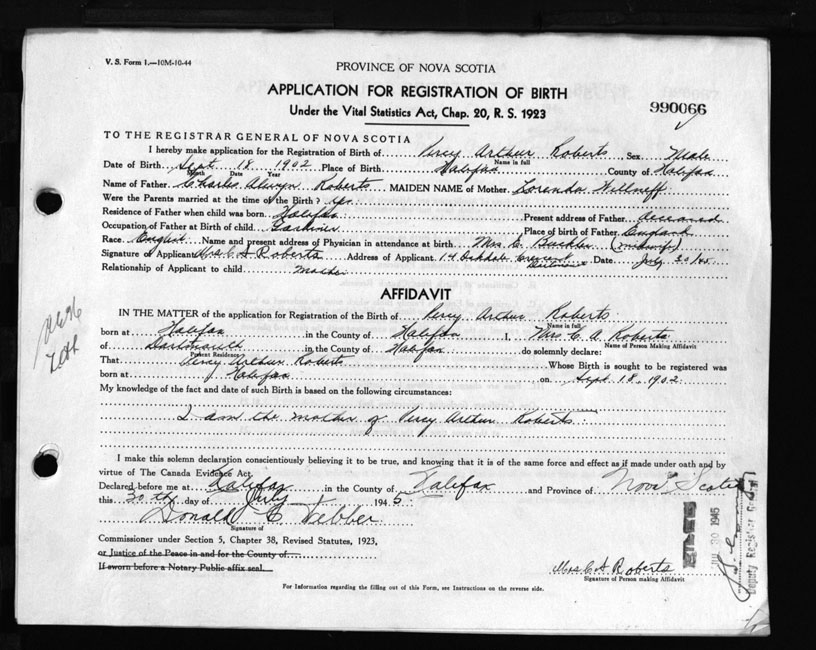 V. S. Form 1.—10M-10-44
PROVINCE OF NOVA SCOTIA
APPLICATION FOR REGISTRATION OF BIRTH
Under the Vital Statistics Act, Chap. 20, R. S. 1923
990066
TO THE REGISTRAR GENERAL OF NOVA SCOTIA
I hereby make application for the Registration of Birth of Percy Arthur Roberts Sex Male
Name in full
Date of Birth Sept 18 1902 Place of Birth Halifax County of Halifax
Month Date Year
Name of Father Charles Alwyn Roberts MAIDEN NAME of Mother Lorenda
Were the Parents married at the time of the Birth? yes
Residence of Father when child was born Halifax Present address of Father deceased
Occupation of Father at Birth of child Gardiner Place of birth of Father England
Race English Name and present address of Physician in attendance at birth Mrs. C. (midwife)
Signature of Applicant Mrs C A Roberts Address of Applicant 14 Oakdale Crescent Dartmouth Date July 30/45
Relationship of Applicant to child Mother
AFFIDAVIT
IN THE MATTER of the application for Registration of the Birth of Percy Arthur Roberts
Name in full
born at Halifax in the County of Halifax I, Mrs C A Roberts
of Dartmouth in the County of Halifax do solemnly declare:
Present Residence Name of Person Making Affidavit
That Percy Arthur Roberts Whose Birth is sought to be registered was
born at Halifax on Sept. 18, 1902
My knowledge of the fact and date of such Birth is based on the following circumstances:
I am the mother of Percy Arthur Roberts.
I make this solemn declaration conscientiously believing it to be true, and knowing that it is of the same force and effect as if made under oath and by
virtue of The Canada Evidence Act.
Declared before me at Halifax in the County of Halifax and Province of Nova Scotia
this 30th day of July 1945
Donald C Webber
Signature of
Commissioner under Section 5, Chapter 38, Revised Statutes, 1923,
or Justice of the Peace in and for the County of
If sworn before a Notary Public affix seal.
Mrs C A Roberts
Signature of Person making Affidavit
For Information regarding the filling out of this Form, see Instructions on the reverse side.
FILED
JUL 30 1945
Deputy Registrar